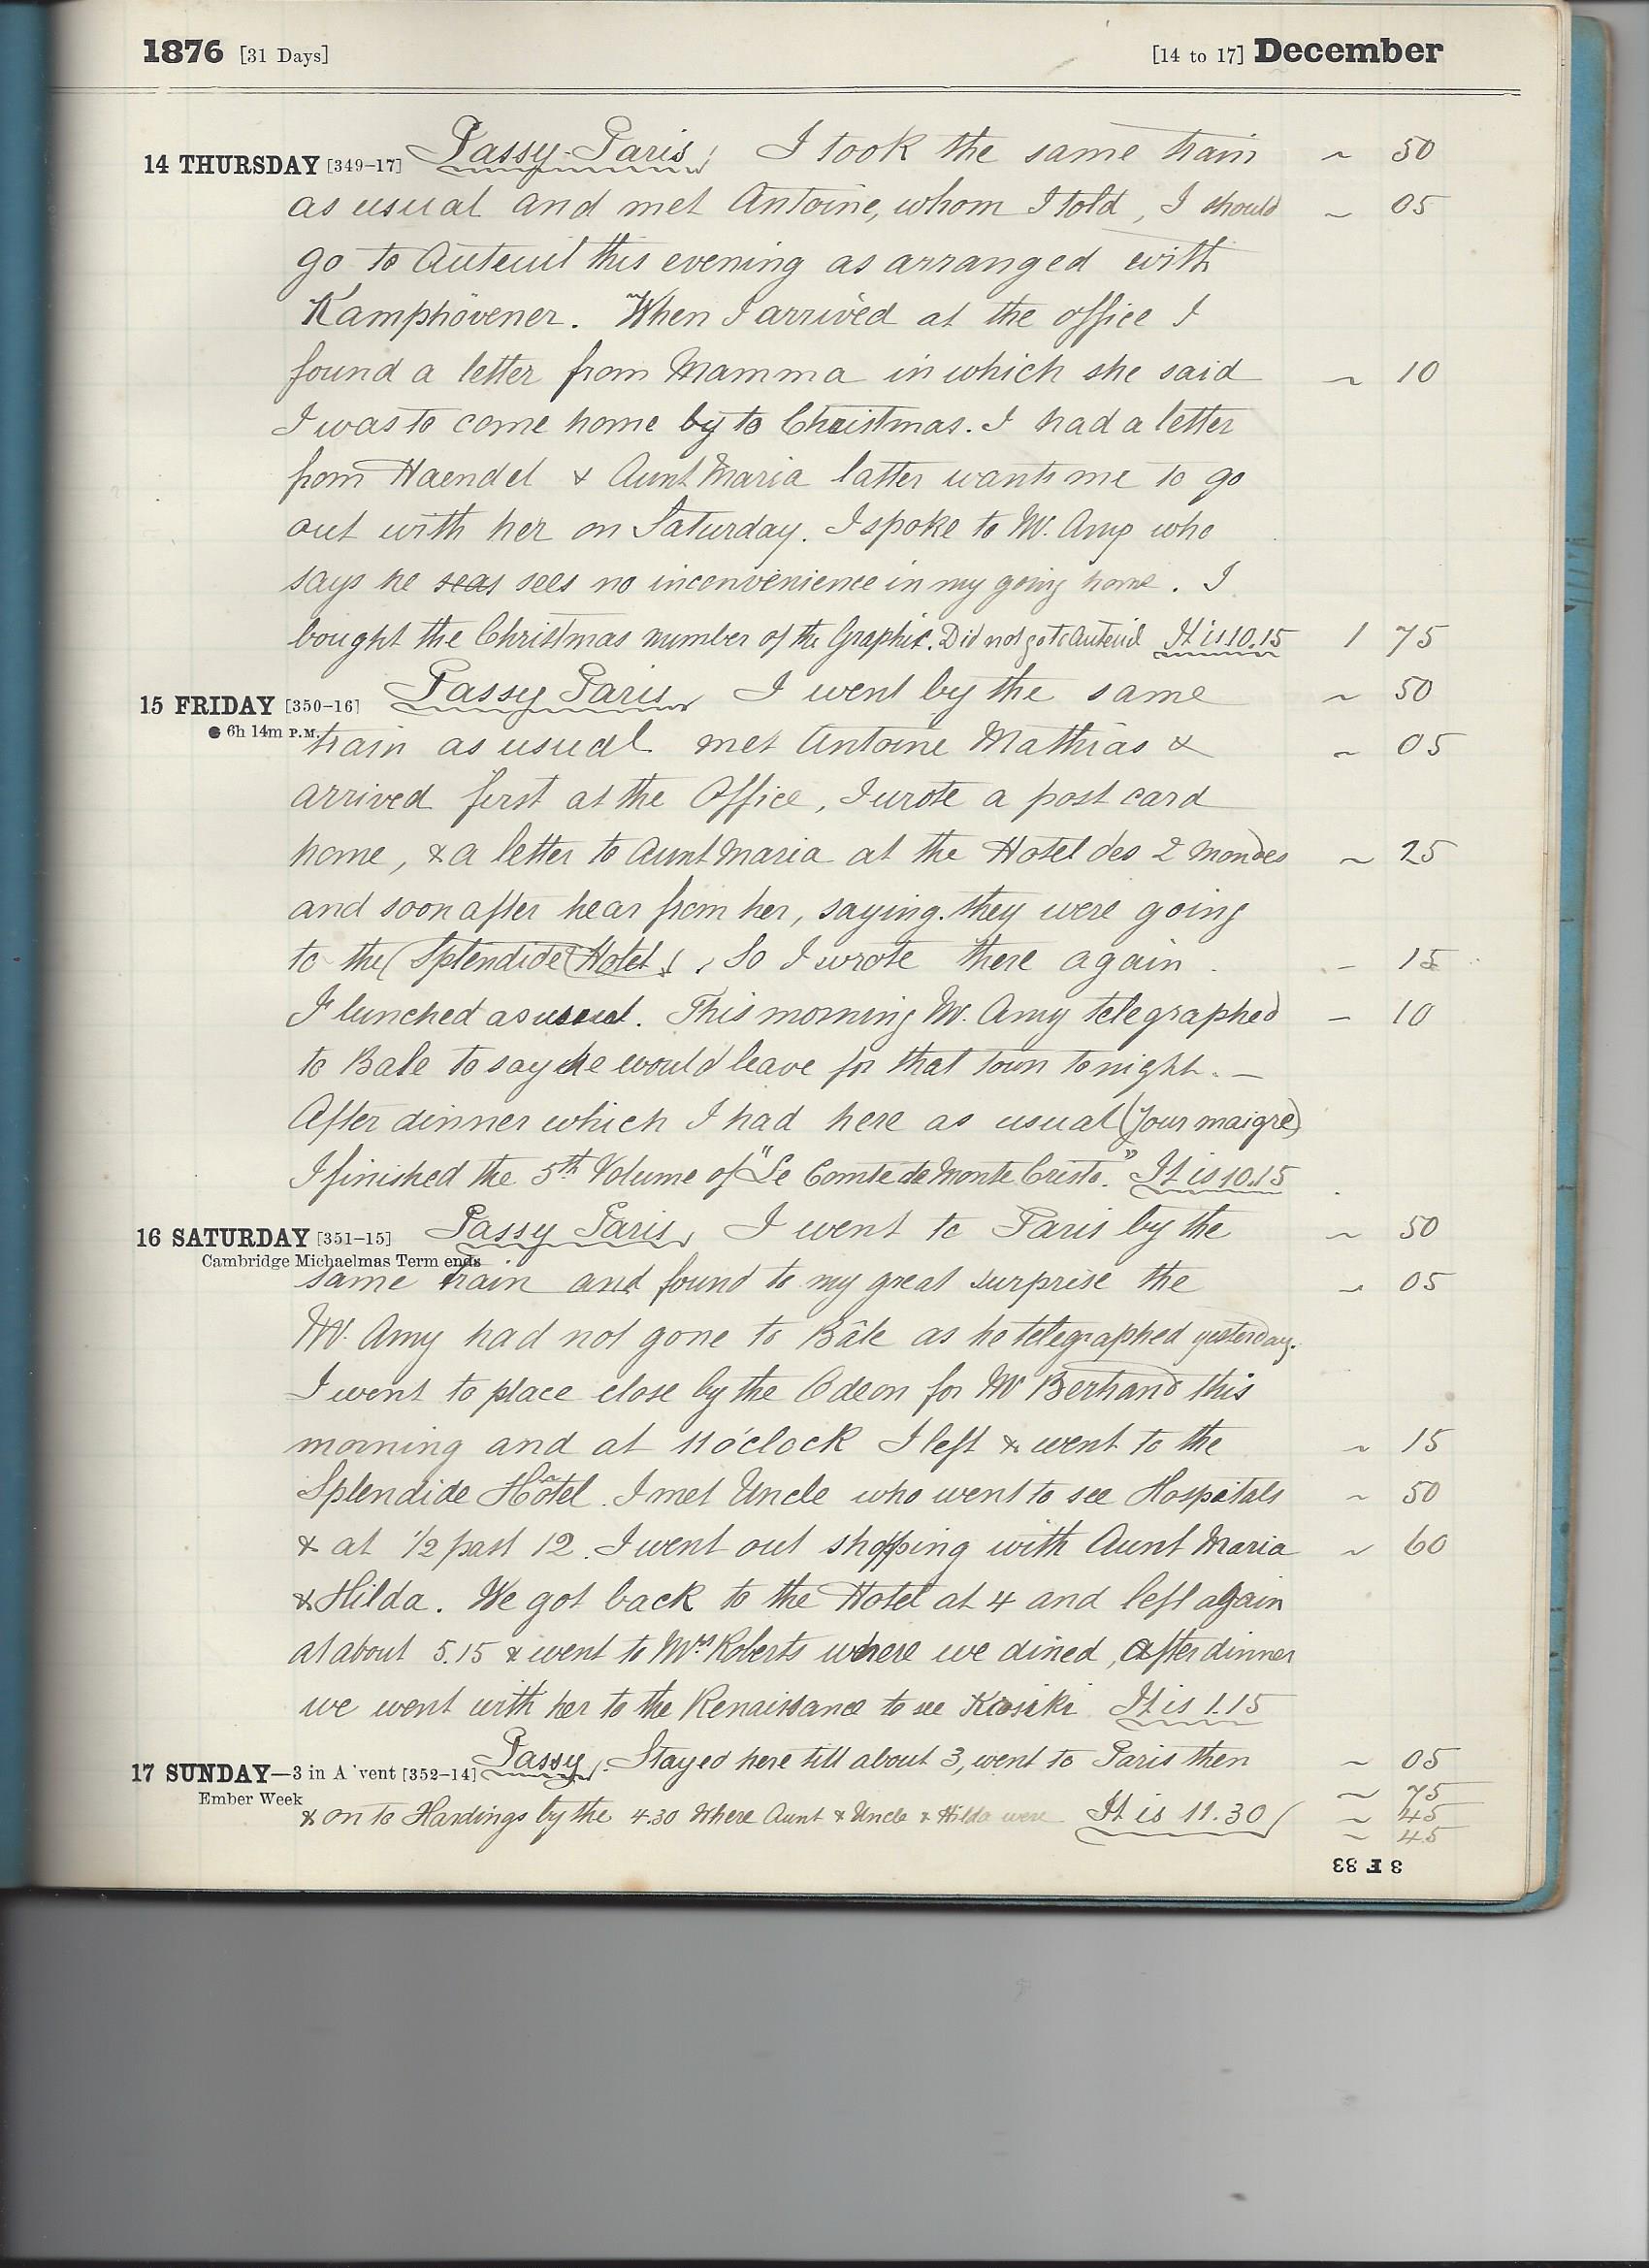 1876 [31 Days] [14 to 17] December
14 THURSDAY [349-17] Passy-Paris, I took the same train ~ 50
as usual and met Antoine, whom I told, I should ~ 05
go to Auteuil this evening as arranged with
Kamphövener. When I arrived at the office I
found a letter from Mamma in which she said ~ 10
I was to come home by to Christmas. I had a letter
from Haendel & Aunt Maria latter wants me to go
out with her on Saturday. I spoke to Mr. Amy who
says he seas sees no inconvenience in my going home. I
bought the Christmas number of the Graphic. Did not go to Auteuil It is 10.15 1 75
15 FRIDAY [350-16] Passy Paris, I went by the same ~ 50
● 6h 14m P.M. train as usual met Antoine Mathias & ~ 05
arrived first at the Office, I wrote a post card
home, & a letter to Aunt Maria at the Hotel des 2 Mondes ~ 25
and soon after hear from her, saying. they were going
to the (Splendide Hotel), So I wrote there again - 15
I lunched as usual. This morning Mr. Amy telegraphed - 10
to Bale to say he would leave for that town tonight. –
After dinner which I had here as usual (Jour maigre)
I finished the 5th Volume of "Le Comte de Monte Cristo." It is 10.15
16 SATURDAY [351-15] Passy Paris, I went to Paris by the ~ 50
Cambridge Michaelmas Term ends
same train and found to my great surprise the ~ 05
Mr. Amy had not gone to Bâle as he telegraphed yesterday.
I went to place close by the Odeon for Mr Bertrand this
morning and at 11 o'clock I left & went to the ~ 15
Splendide Hôtel. I met Uncle who went to see Hospitals ~ 50
& at 1/2 past 12. I went out shopping with Aunt Maria ~ 60
& Hilda. We got back to the Hotel at 4 and left again
at about 5.15 & went to Mrs. Roberts where we dined, after dinner
we went with her to the Renaissance to see Kosiki It is 1.15
17 SUNDAY—3 in A vent [352-14] Passy, Stayed here till about 3, went to Paris then ~ 05
Ember Week ~ 75
& on to Hardings by the 4.30 Where Aunt & Uncle & Hilda were It is 11.30 ~ 45
~ 45
8 F 83